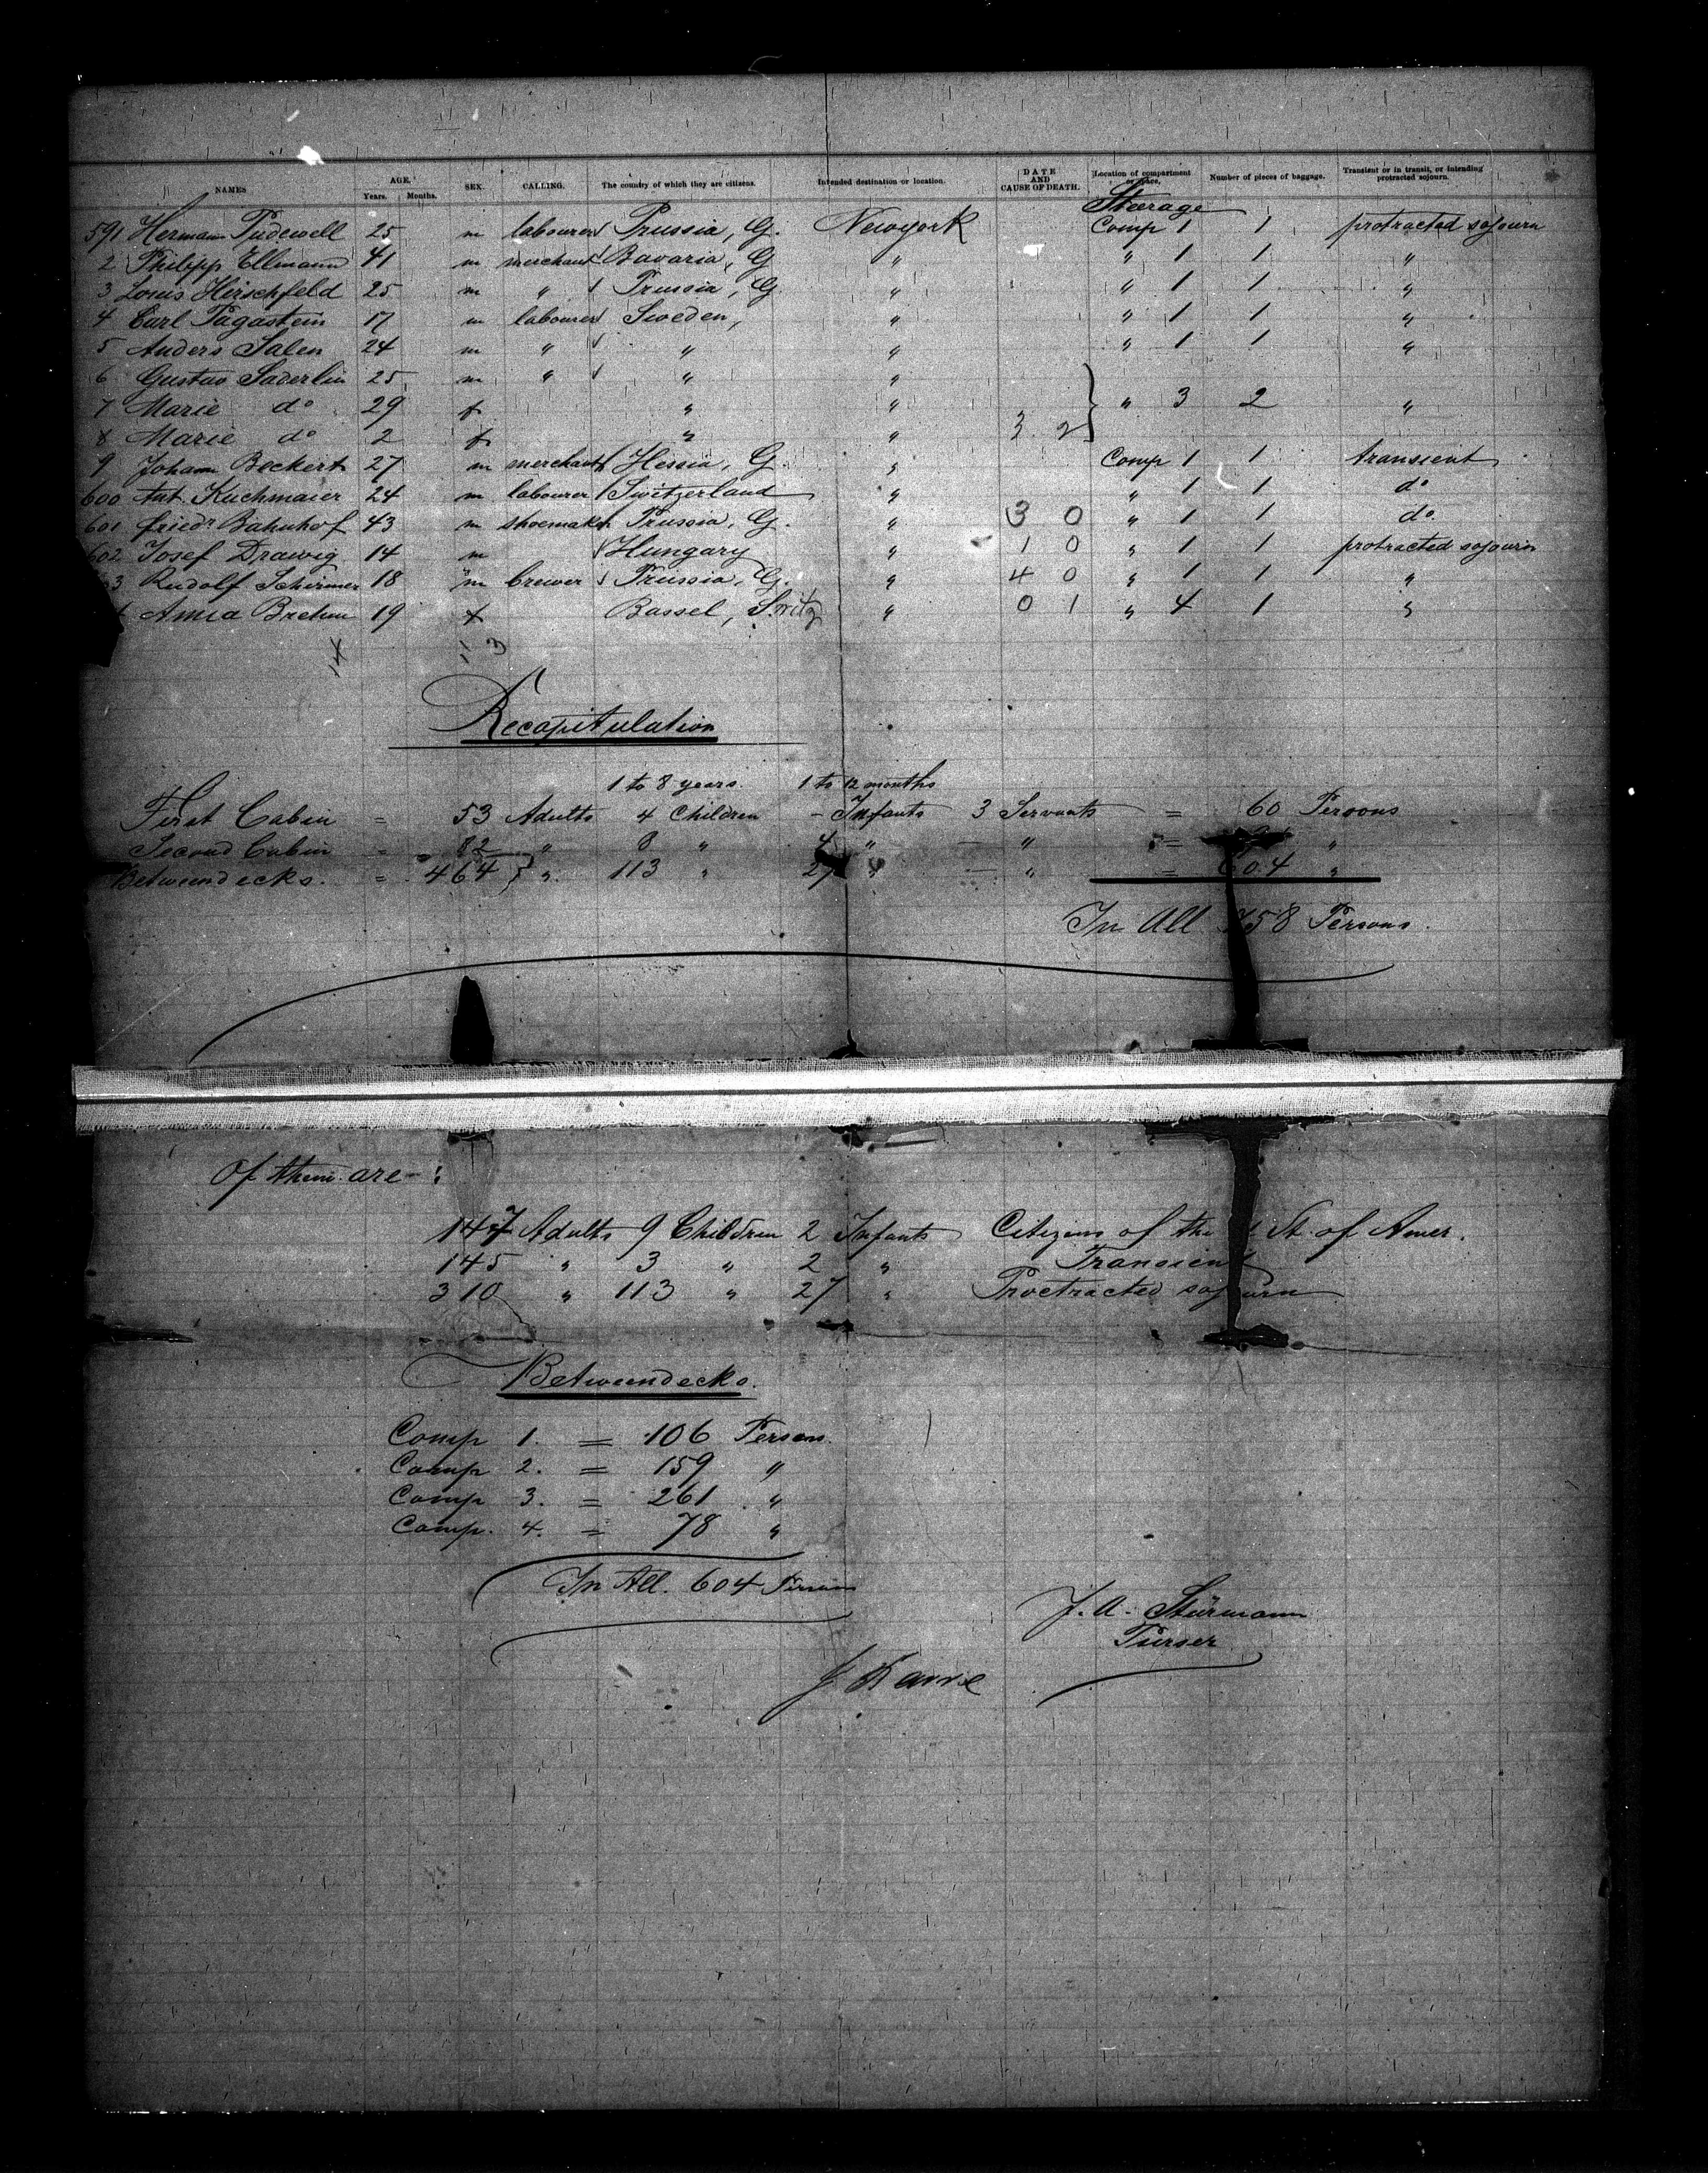 NAMES AGE. Years. Months. SEX. CALLING. The country of which they are citizens. Intended destination or location. DATE AND CAUSE OF DEATH. Location of compartment or space. Number of pieces of baggage. Transient or in transit, or intending protracted sojourn.
Stærage
591 Hermann Pudewell 25 m labourer Prussia, G. Newyork Comp 1 1 protracted sojourn
2 Philipp Ellmann 41 m merchant Bavaria, G " " 1 1 "
3 Louis Hirschfeld 25 m " Prussia, G " " 1 1 "
4 Carl Pagastein 17 m labourer Sweden, " " 1 1 "
5 Anders Salen 24 m " " " " 1 1 "
6 Gustav Saderlin 25 m " " "
7 Marie do 29 f " " " 3 2 "
8 Marie do 2 f " " 3 2
9 Johann Beckert 27 m merchant Hessia, G " Comp 1 1 transient
600 Ant. Kuchmaier 24 m labourer Switzerland " " 1 1 do
601 friedr Bahnhof 43 m shoemaker Prussia, G. " 3 0 " 1 1 do.
602 Josef Drawig 14 m Hungary " 1 0 " 1 1 protracted sojourn
3 Rudolf Schirmer 18 m brewer Prussia, G. " 4 0 " 1 1 "
Anna Brehm 19 f Bassel, Switz " 0 1 " 4 1 "
14 11 3
Recapitulation
1 to 8 years. 1 to 12 months
First Cabin = 53 Adults 4 Children - Infants 3 Servants = 60 Persons
Second Cabin = 82 " 8 " 4 " — " = "
Betweendecks. = 464 } " 113 " 27 " — " = 604 "
In All 758 Persons.
Of them are :
147 Adults 9 Children 2 Infants Citizens of the St. of Amer.
145 " 3 " 2 " Transient
310 " 113 " 27 " Proctracted sojourn
Betweendecks.
Comp 1. = 106 Persons.
Comp 2. = 159 "
Comp 3. = 261 "
Comp. 4. = 78 "
In All. 604 Persons
J. A. Stürmann
Purser